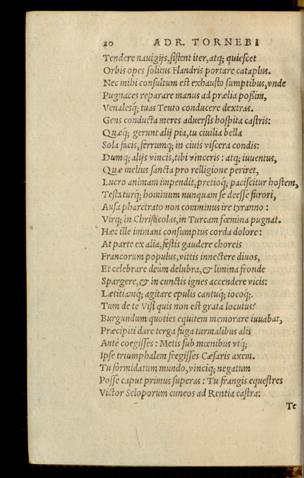 20 ADR. TORNEBI
Tendere nauigijs, sistent iter, atq; quiescet
Orbis opes solitus Flandris portare cataplus.
Nec mihi consultum est exhausto sumptibus, vnde
Pugnaces reparare manus ad prælia possim,
Venalesq; tuas Teuto conducere dextras.
Gens conducta meres aduersis hospita castris:
Quæq; gerunt alij pia, tu ciuilia bella
Sola facis, ferrumq; in ciuis viscera condis:
Dumq; alijs vincis, tibi vinceris: atq; iuuentus,
Quæ melius sancta pro relligione periret,
Lucro animam impendit, pretioq; paciscitur hostem,
Testaturq; hominum nunquam se deesse furori,
Ausa pharetrato non comminus ire tyranno:
Virq; in Christicolas, in Turcam fœmina pugnat.
Hæc ille immani consumptus corda dolore:
At parte ex alia, festis gaudere choreis
Francorum populus, vittis innectere diuos,
Et celebrare deûm delubra, & limina fronde
Spargere, & in cunctis ignes accendere vicis:
Lætitiamq; agitare epulis cantuq; iocoq;.
Tum de te Visi quis non est grata locutus?
Burgundum quoties equitem memorare iuuabat,
Præcipiti dare terga fuga turmalibus alis
Ante coegisses: Metis sub mœnibus vtq;
Ipse triumphalem fregisses Cæsaris axem.
Tu formidatum mundo, vinciq; negatum
Posse caput primus superas: Tu frangis equestres
Victor Seloporum cuneos ad Rentia castra.
Te